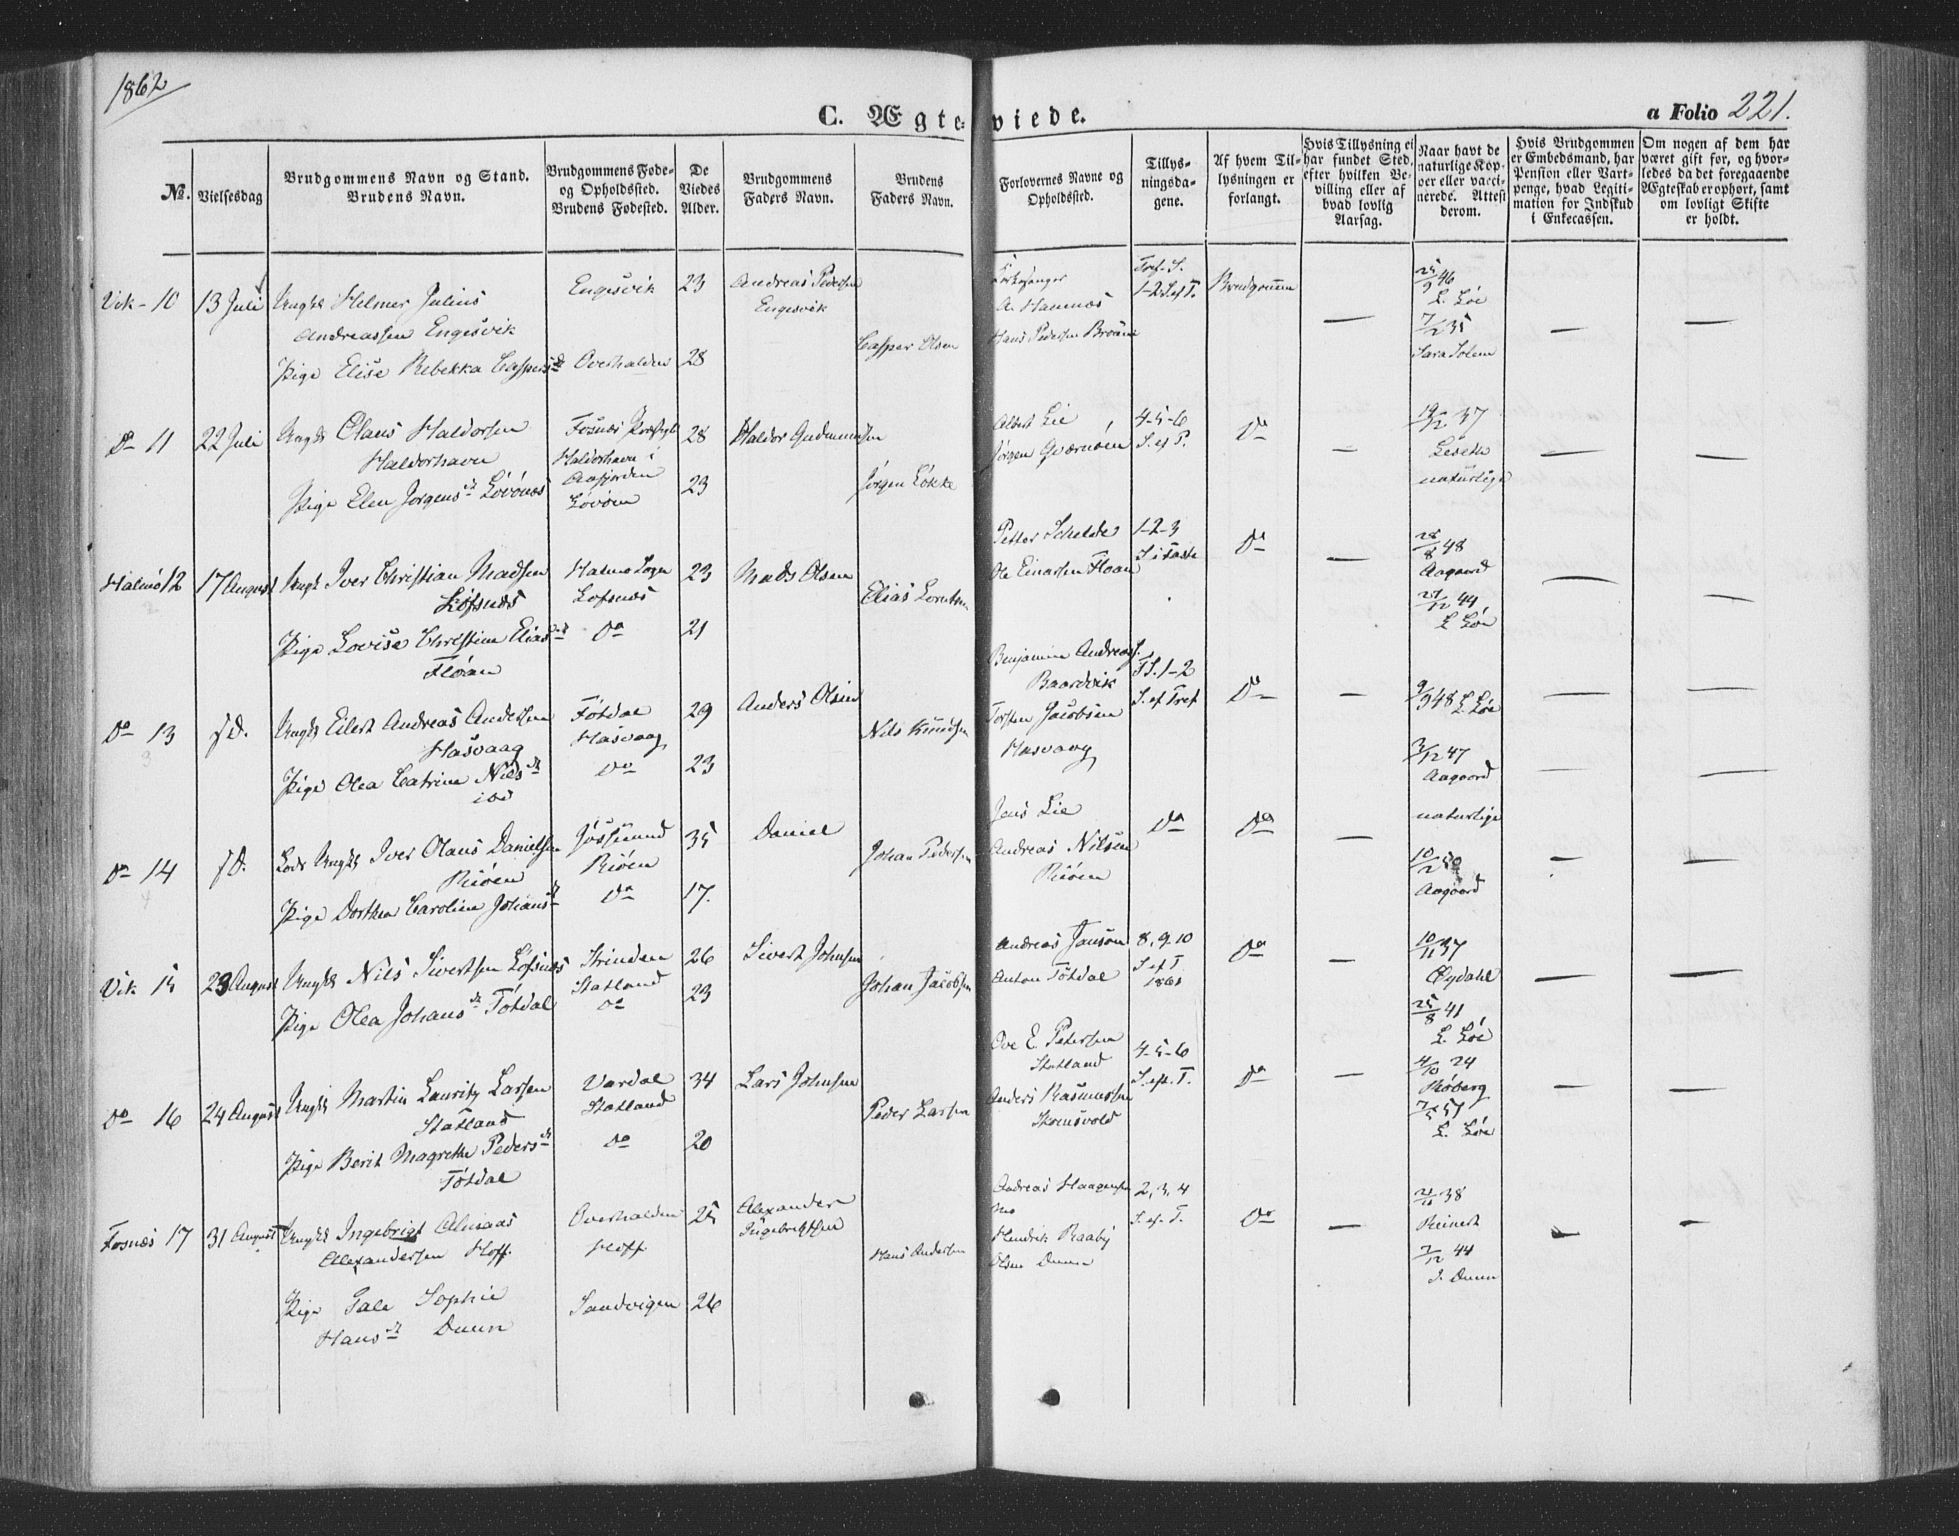 1862
C. Ægteviede.
a Folio 221.
No.
Vielsesdag
Brudgommens Navn og Stand.
Brudens Navn.
Brudgommens Føde-
og Opholdssted.
Brudens Fødested.
De
Viedes
Alder.
Brudgommens
Faders Navn.
Brudens
Faders Navn.
Forlovernes Navne og
Opholdssted.
Tillys-
ningsda-
gene.
Af hvem Til-
lysningen er
forlangt.
Hvis Tillysning ei
har fundet Sted,
efter hvilken Be-
villing eller af
hvad lovlig
Aarsag.
Naar havt de
naturlige Kop-
per eller vacci-
nerede. Attest
derom.
Hvis Brudgommen
er Embedsmand, har
Pension eller Vart-
penge, hvad Legiti-
mation for Indskud
i Enkecassen.
Om nogen af dem har
været gift før, og hvor-
ledes da det foregaaende
Ægteskab er ophørt, samt
om lovligt Skifte
er holdt.
Vik - 10 13 Juli Ungk Helmer Julius
Andreassen Engesvik
Engesvik 23 Andreas Pedersen
Engesvik
Pige Elise Rebekka Caspersd Overhalden 28
Casper Olsen
Kirkesanger
A. Hannæs
Hans Pedersen
Tref. S.
1-2 S ef T.
Brudgommen
25/9 46
L. Løe
7/2 35
Sara Solem
Do 11 22 Juli Ungk Olaus Haldorsen
Haldorhavn
Fosnæs Præstgl 28 Haldor Gudmundsen
Haldorhavn i
Aafjorden
Pige Elen Jørgensd Løvønæs Løvøen 23
Jørgen Løkke
Albert Lie
Jørgen Qværnøen
4-5-6
S. ef T.
Do
19/12 37
Leseth
naturlige
Halmø 12 17 August Ungk Iver Christian Madsen
Løfsnæs
Halmø Sogn 23 Mads Olsen
Lofsnæs
Pige Lovise Christine Eliasd Do 21
Fløan
Elias Lorntsen
Petter Schelde
Ole Einarsen Floan
1-2-3
S. i Faste
Do
28/8 48
Aagaard
27/12 44
L Løe
Do 13 s.D. Ungk Eilert Andreas Andersen
Hasvaag
Føtdal 29 Anders Olsen
Hasvaag
Pige Olea Catrine Nilsd Do 23
ibd
Nils Knudsen
Benjamin Andreass.
Baardvik
Torsten Jacobsen
Hasvaag
FS. 1-2
S. ef Tref
Do
9/9 48 L Løe
3/12 47
Aagaard
Do 14 s.D. Ungk Iver Olaus Danielsen
Riøen
Jøssund 35 Daniel
Riøen
Pige Dorthea Caroline Johansd Do 17.
Johan Pedersen
Jens Lie
Andreas Nilsen
Riøen
Do Do
naturlige
10/2 50
Aagaard
Vik 15 23 August Ungk Nils Sivertsen Løfsnæs
Strinden 26 Sivert Johnsen
Statland
Pige Olea Johansd Føtdal Do 23
Johan Jacobsen
Andreas Janson
Anton Føtdal
8, 9. 10
S. ef T
1861
Do
10/11 37
Øydahl
25/8 41
L. Løe
Do 16 24 August Ungk Martin Lauritz Larsen
Statland
Værdal 34 Lars Johnsen
Statland
Pige Berit Magrethe Pedersd Do 20
Føtdal
Peder Larsen
Ove E. Petersen
Statland
Anders Rasmussen
4-5-6
S. ef. T.
Do
4/10 24
Røberg
7/5 57
L. Løe
Fosnæs 17 31 August Ungk Ingebrigt Almaas
Alexandersen Hoff
Overhalden 25 Alexander
Hoff Ingebrigtsen
Pige Gale Sophie Sandvigen 26
Hansd Duun
Hans Andersen
Andreas Haagensen
Moe
Hendrik Raaby
Olsen Duun
2, 3, 4
S. ef. T.
Do
21/11 38
Reinert
7/12 44
J. Duun